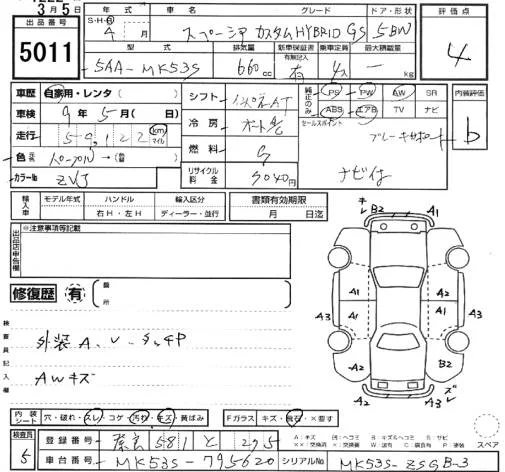 3月5日
出品番号 5011
年式 車名 グレード ドア・形状 評価点
S・H・R 4年 月 スペーシア カスタムHYBRID GS 5BW 4
型式 排気量 新車保証書 乗車定員 最大積載量
5AA-MK53S 660cc 有 4人 - kg
車歴 自家用・レンタ( ) シフト インパネAT 純正のみ PS PW AW SR 内装評価
車検 9年5月( 日) 冷房 オートA/C ABS エアB TV ナビ b
走行 58,122 km マイル セールスポイント
ブレーキサポ
色 →( ) 燃料 G
カラーNo ZVJ リサイクル料金 円 ナビ付
輸入車 モデル年式 ハンドル 輸入区分 書類有効期限
右H・左H ディーラー・並行 月 日迄
出品店申告欄 ※注意事項等記載
修復歴 有 箇所
キ B2 A1
A2 A2
A3 A1 A1 A3
A2 B2
A2 A3 ズ
検査員記入欄
外装A、U、S、エクP
AWキズ
内装シート 穴・破れ・スレ・コゲ・汚れ・キズ・黄ばみ Fガラス キズ・飛石・×要す
検査員 5 登録番号 奈良 581 と 295
A:キズ スペア
車台番号 MK53S-795620 シリアルNo MK53S-ZSGB-3